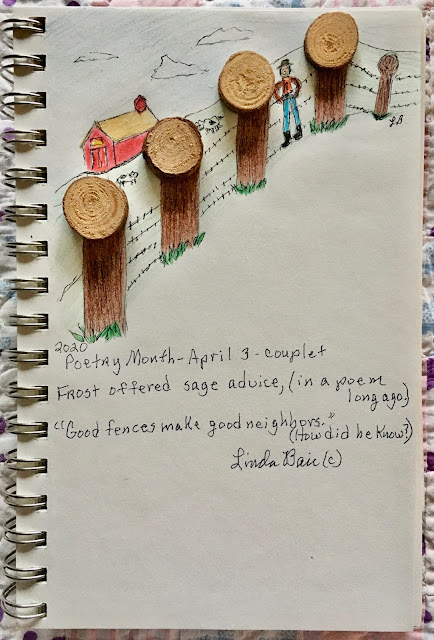 LB
2020
Poetry Month - April 3 - couplet
Frost offered sage advice, (in a poem
long ago.)
"Good fences make good neighbors."
(How did he know?)
Linda Baie (c)